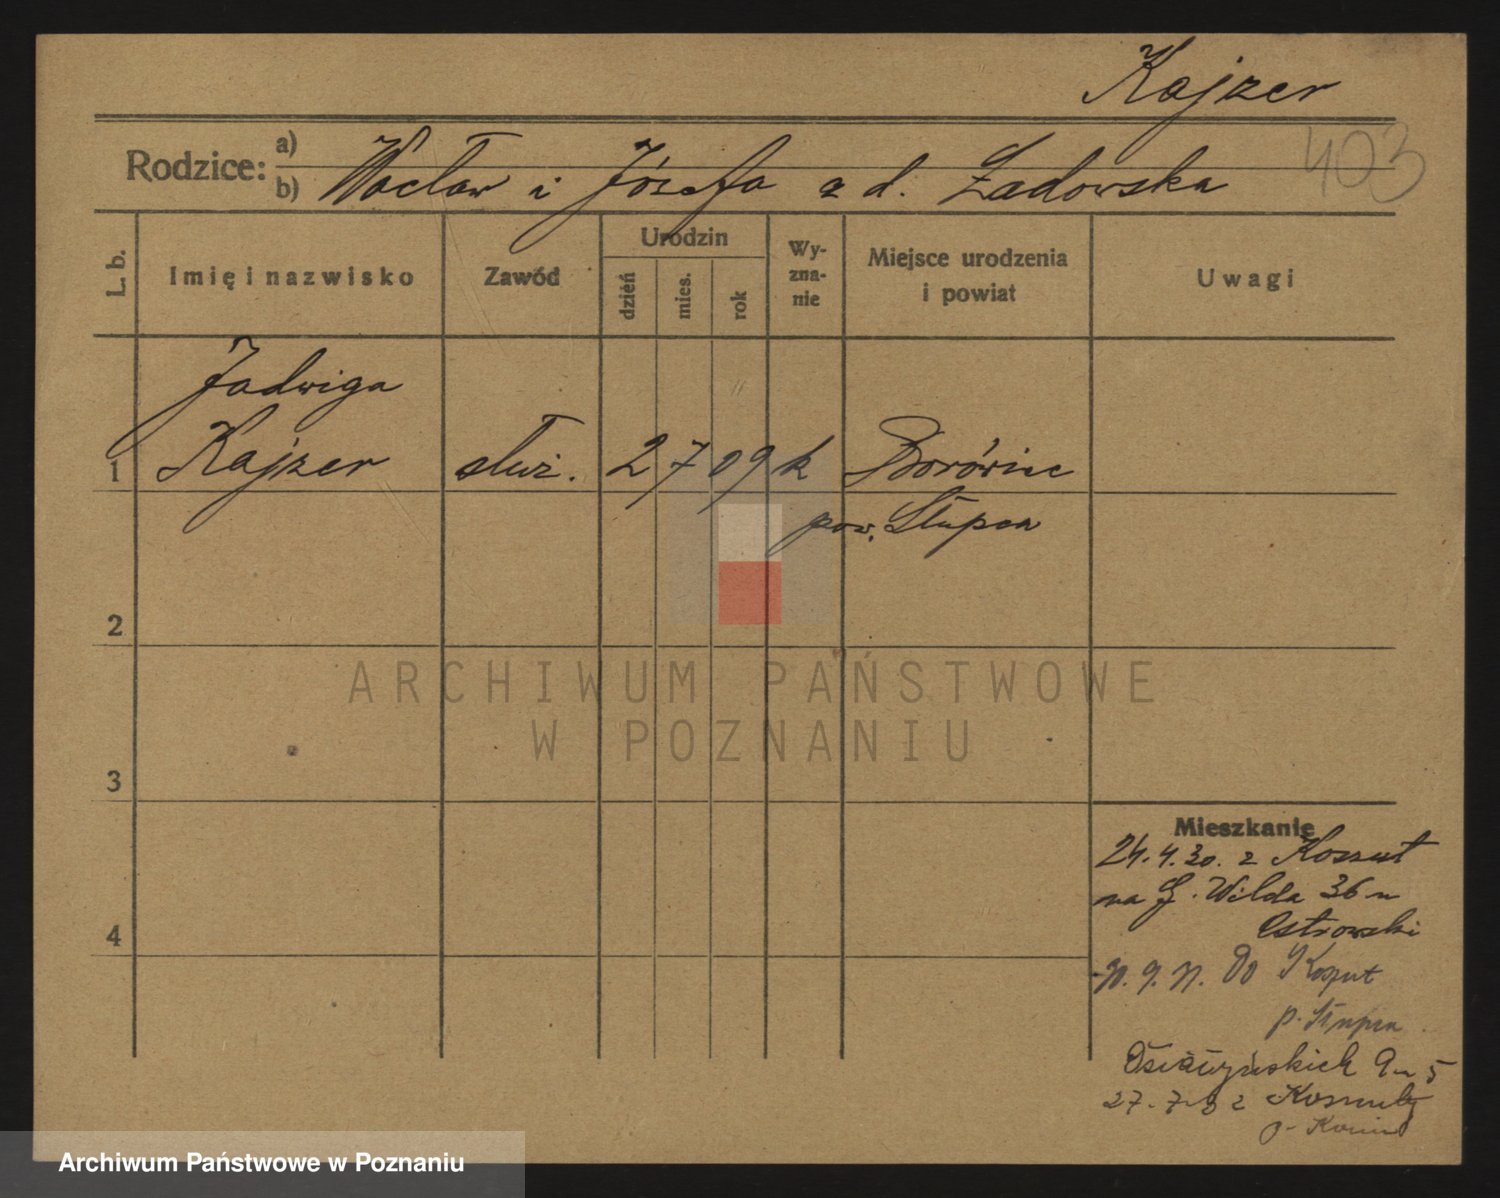 Kajzer
403
Rodzice: a)
b) Wacław i Józefa z d. Żadowska
L. b.
Imię i nazwisko
Zawód
Urodzin
dzień
mies.
rok
Wy-
zna-
nie
Miejsce urodzenia
i powiat
Uwagi
Jadwiga
1 Kajzer służ. 2 7 09 k Borówiec
pow. Słupca
2
3
4
ARCHIWUM PAŃSTWOWE
W POZNANIU
Mieszkanie
24.4.30. z Kossut
na G. Wilda 36 u
Ostrowski
30. 9. 31. do
p. Słupca
9 m 5
27. 7. z
Archiwum Państwowe w Poznaniu